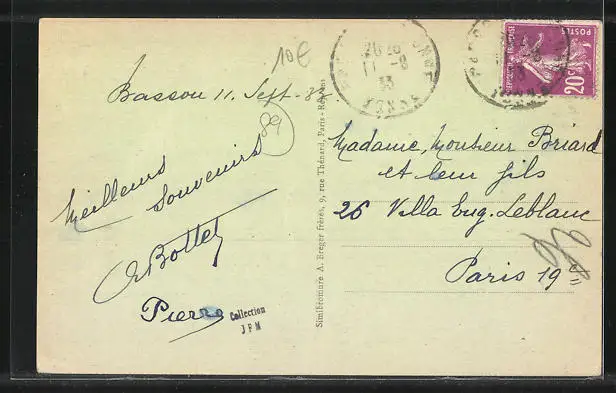 10€
Bassou 11. Sept. 33
89
Meilleurs
souvenirs
Bottet
Pierre
Collection
JFM
Simibromure A. Breger frères, 9, rue Thénard, Paris - 
20
11 - 9
33
YONNE
REPUBLIQUE FRANÇAISE
POSTES
20c
Madame, Monsieur Briard
et leur fils
26 Villa Eug. Leblanc
Paris 19e